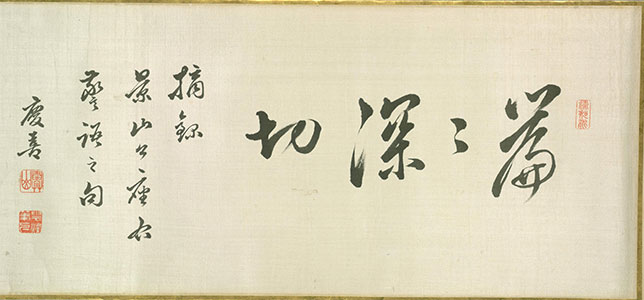 篇〻深切
摘録
景山公座右
警語之句
慶喜